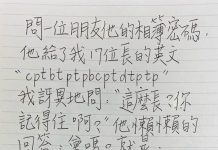 問一位朋友他的相簿密碼,
他給了我17位長的英文
"cptbtptpbcptdtptp"
我訝異地問:"這麼長?你
記得住啊?"他懶懶的